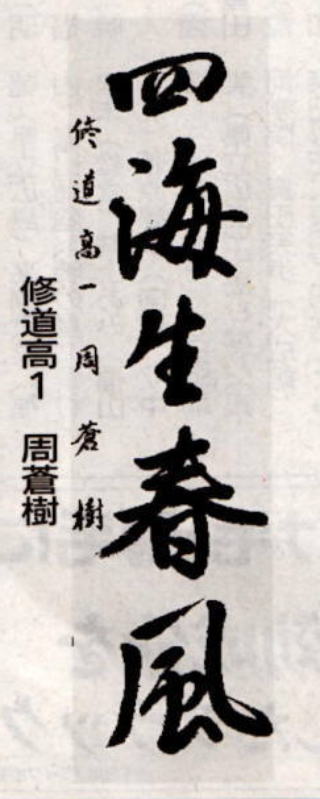 四海生春風
修道高一 周蒼樹
修道高1 周蒼樹